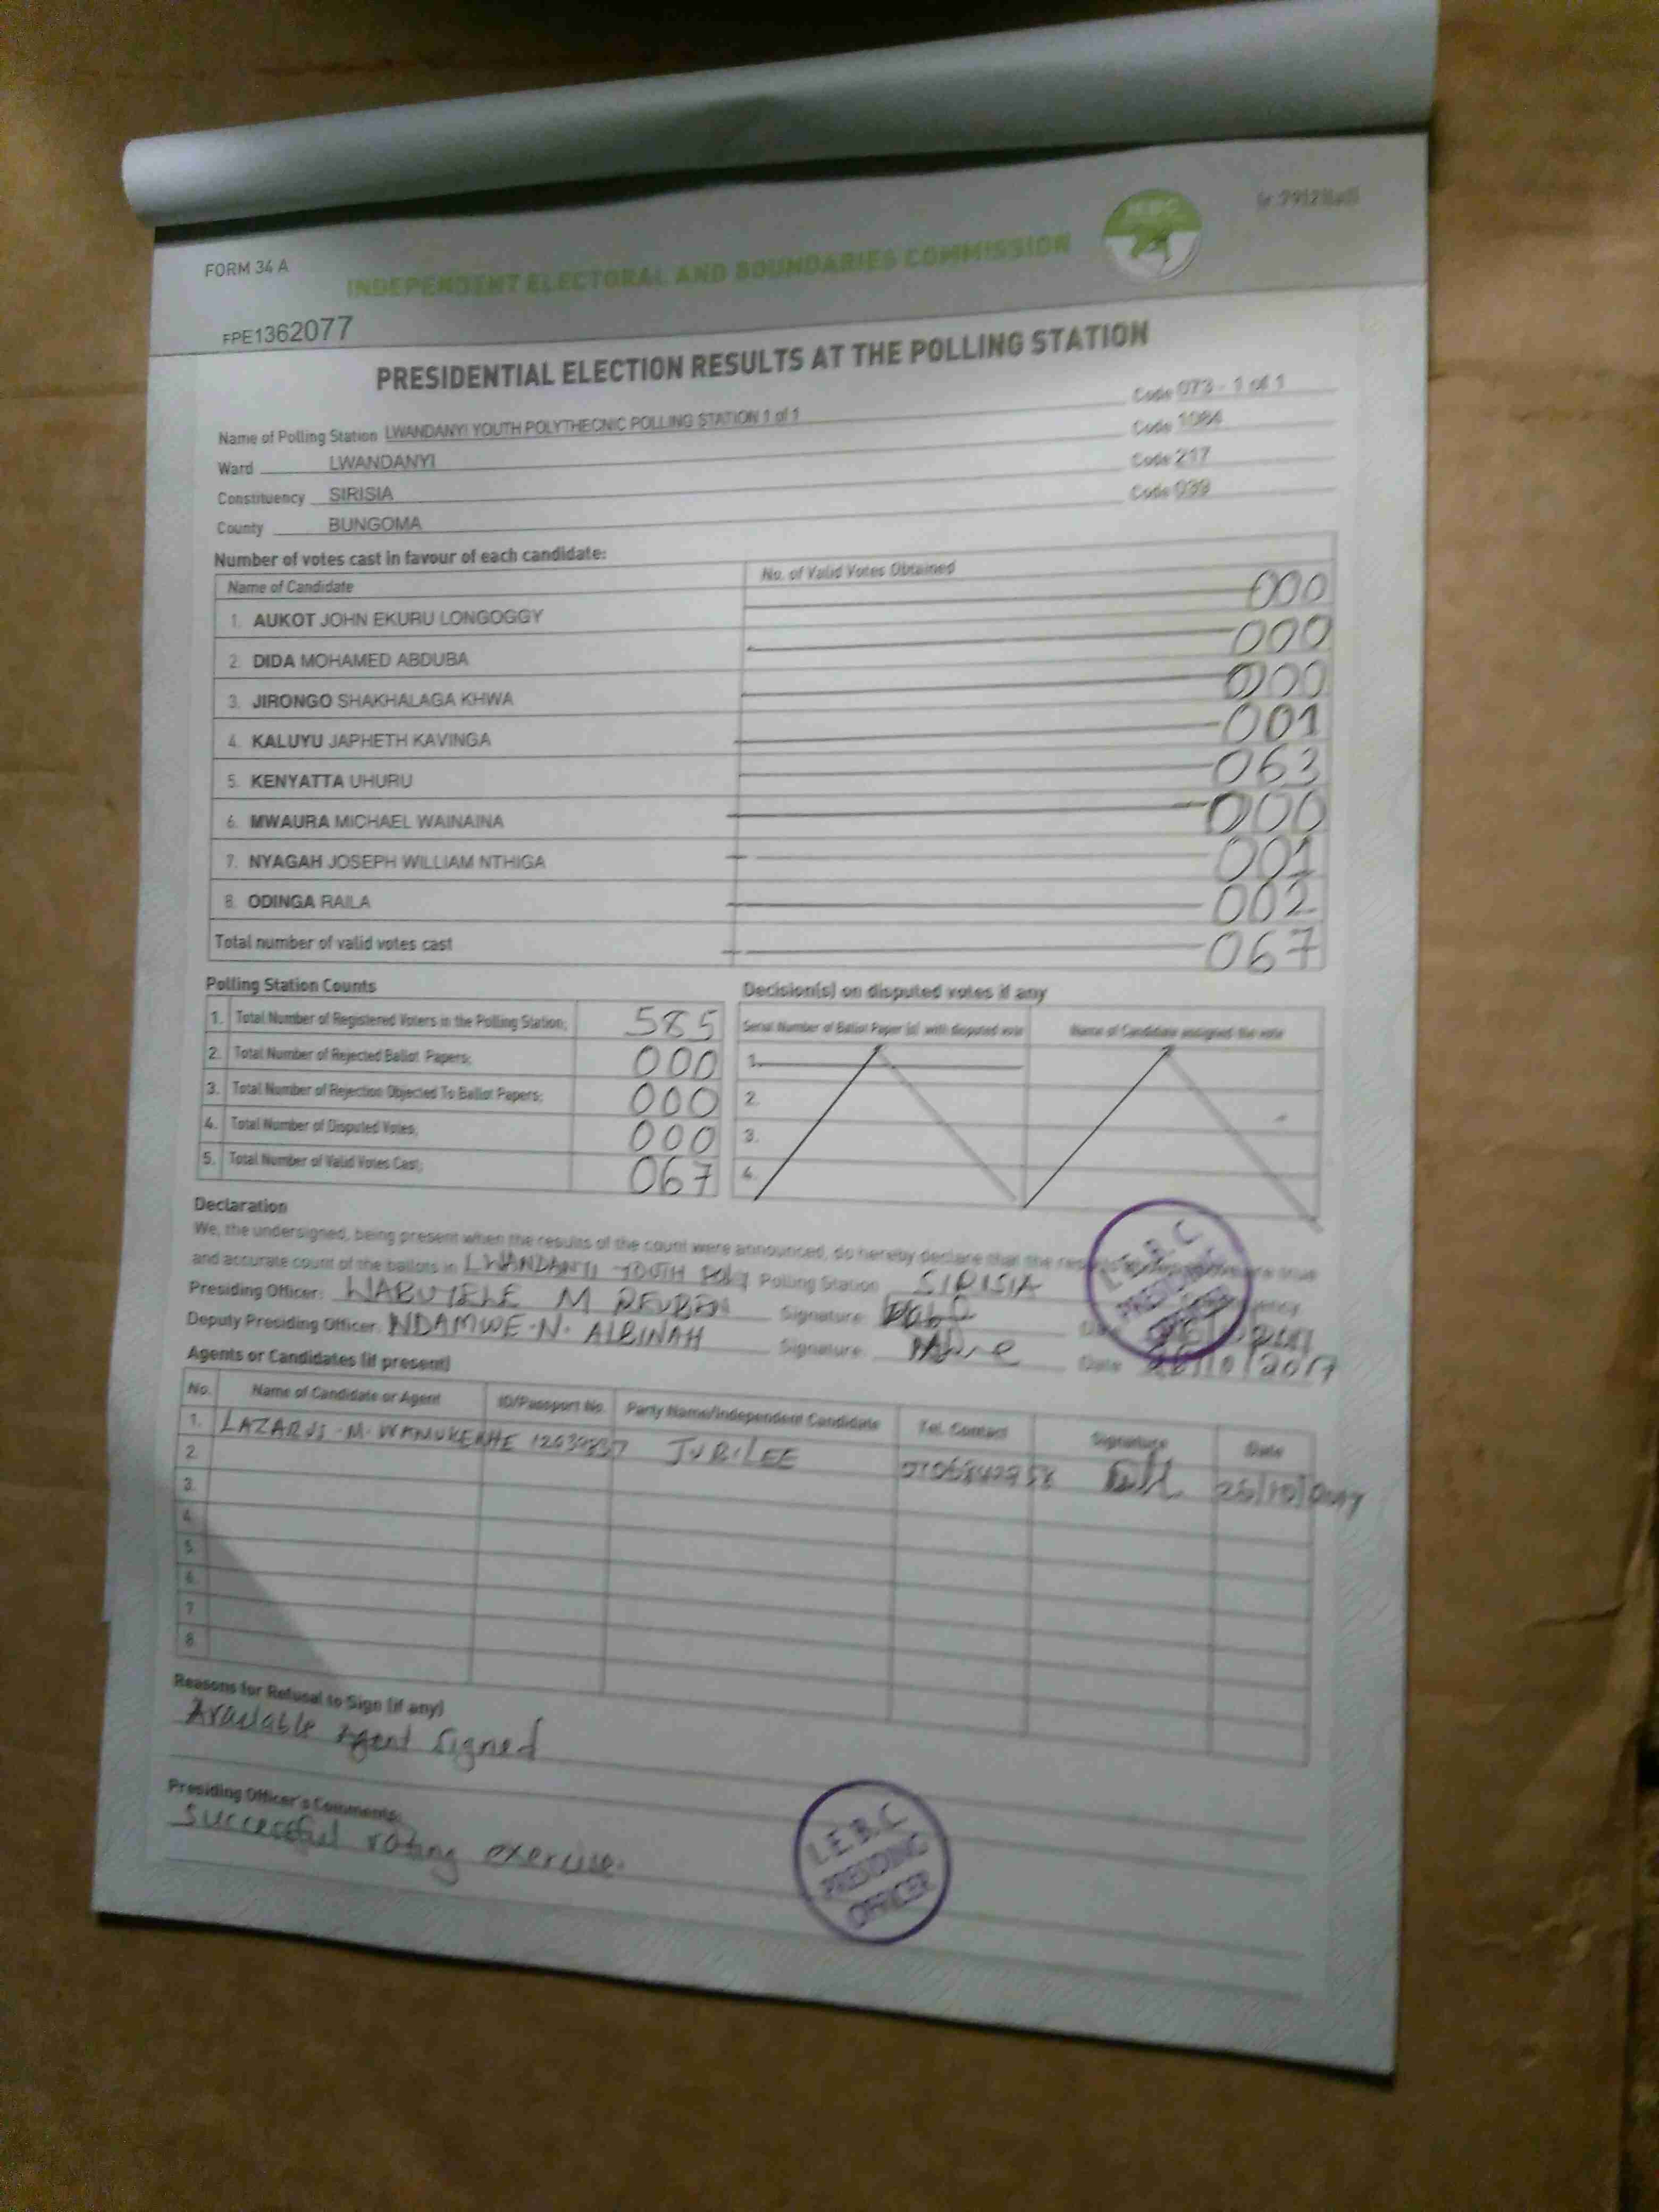 FORM 34 A
INDEPENDENT ELECTORAL AND BOUNDARIES COMMISSION
IEBC
FPE1362077
PRESIDENTIAL ELECTION RESULTS AT THE POLLING STATION
Name of Polling Station LWANDANYI YOUTH POLYTHECNIC POLLING STATION 1 of 1 Code 073 - 1 of 1
Ward LWANDANYI Code 1084
Constituency SIRISIA Code 217
County BUNGOMA Code 039
Number of votes cast in favour of each candidate:
Name of Candidate No. of Valid Votes Obtained
1. AUKOT JOHN EKURU LONGOGGY 000
2. DIDA MOHAMED ABDUBA 000
3. JIRONGO SHAKHALAGA KHWA 000
4. KALUYU JAPHETH KAVINGA 001
5. KENYATTA UHURU 063
6. MWAURA MICHAEL WAINAINA 000
7. NYAGAH JOSEPH WILLIAM NTHIGA 001
8. ODINGA RAILA 002
Total number of valid votes cast 067
Polling Station Counts
1. Total Number of Registered Voters in the Polling Station; 585
2. Total Number of Rejected Ballot Papers; 000
3. Total Number of Rejection Objected To Ballot Papers; 000
4. Total Number of Disputed Votes; 000
5. Total Number of Valid Votes Cast; 067
Decision(s) on disputed votes if any
Serial Number of Ballot Paper (s) with disputed vote Name of Candidate assigned the vote
1.
2.
3.
4.
Declaration
We, the undersigned, being present when the results of the count were announced, do hereby declare that the true
and accurate count of the ballots in LWANDANYI YOUTH POLY Polling Station SIRISIA
Presiding Officer: WABUYELE M REUBEN Signature
Deputy Presiding Officer: NDAMWE N. ALBINAH Signature: Date 26/10/2017
I.E.B.C PRESIDING OFFICER
Agents or Candidates (if present)
No. Name of Candidate or Agent ID/Passport No. Party Name/Independent Candidate Tel. Contact Signature Date
1. LAZARUS M. JUBILEE 26/10/2017
2.
3.
4.
5.
6.
7.
8.
Reasons for Refusal to Sign (if any)
Available Agent signed
Presiding Officer's Comments:
Successful voting exercise.
I.E.B.C
PRESIDING
OFFICER